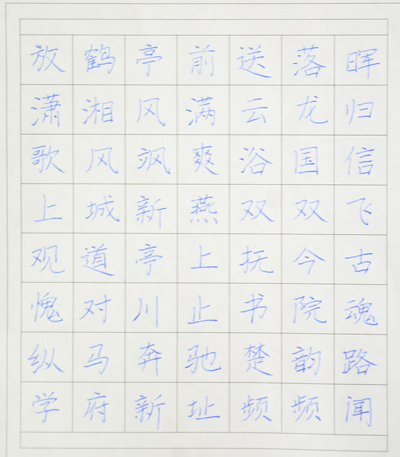 放鹤亭前送落晖
潇湘风满云龙归
歌风飒爽浴国信
上城新燕双双飞
观道亭上抚今古
愧对川止书院魂
纵马奔驰楚韵路
学府新址频频闻